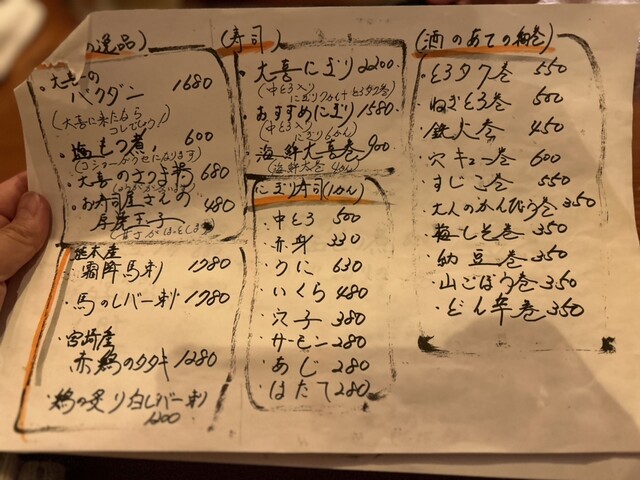 の逸品)
・大喜の
バクダン 1680
(大喜に来たなら
コレでしょう!)
・塩もつ煮! 600
(コショーがクセになります)
・大喜のさつま揚 680
・お寿司屋さんの
厚焼玉子 480
熊本産
・霜降馬刺 1980
・馬のレバー刺 1980
・宮崎産
赤鶏のタタキ 1280
・鶏の炙り白レバー刺
1200
(寿司)
・大喜にぎり 2200
(中とろ入り
にぎり7かん+とろタク巻)
・おすすめにぎり 1580
(中とろ入り
にぎり6かん)
・海鮮大喜巻 900
(海鮮太巻 4かん)
にぎり寿司(1かん)
・中とろ 500
・赤身 330
・うに 630
・いくら 480
・穴子 380
・サーモン 280
・あじ 280
・ほたて 280
(酒のあての細巻)
・とろタク巻 550
・ねぎとろ巻 500
・鉄火巻 450
・穴キュー巻 600
・すじこ巻 550
・大人のかんぴょう巻 350
・梅しそ巻 350
・納豆巻 350
・山ごぼう巻 350